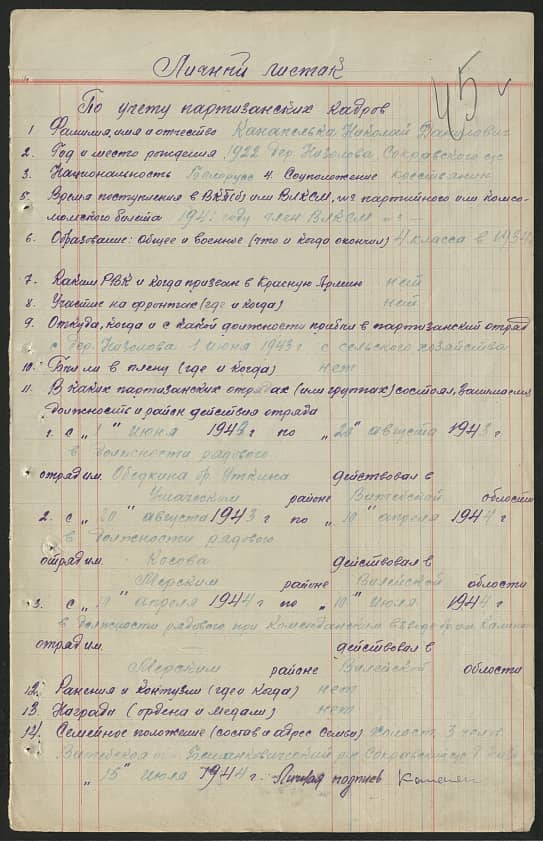 Личный листок
45
По учету партизанских кадров
1 Фамилия, имя и отчество Канапелька Николай Данилович
2. Год и место рождения 1922 дер. Низолова, Сокравского с/с
3. Национальность Белорусс 4. Соцположение крестьянин
5. Время поступления в ВКП(б) или ВЛКСМ, № партийного или комсо-
мольского билета году член ВЛКСМ
6. Образование: Общее и военное (что и когда окончил) 4 класса в
7. Каким РВК и когда призван в Красную Армию ней
8. Участие на фронтах (где и когда) ней
9. Откуда, когда и с какой должности прибыл в партизанский отряд
с дер. Низолова 1 июня 1943 г с сельского хозяйства
10. Были в плену (где и когда) нет
11. В каких партизанских отрядах (или группах) состоял, занимаемая
должность и район действия отряда
1. с „1" июня 1943 г по „20" августа 1943 г
в должности рядового
отряд им. Ободкина бр. Уткина действовал в
Ушачском районе Витебской области
2. с „20" августа 1943 г по „10" апреля 1944 г
в должности рядового
отряд им. Косова действовал в
Мерским районе Вилейской области
3. с „ " апреля 1944 г по „10" июля 1944 г
в должности рядового при Комендантском взводе бр. Калинина
отряд им. действовал в
Мерским районе Вилейской области
12. Ранения и контузии (где и когда) нет
13. Награды (ордена и медали) нет
14. Семейное положение (состав и адрес семьи) холост, 3 чел.
Витебская Бешанковический р-н Сокравский с/с
„15" июля 1944 г. Личная подпись